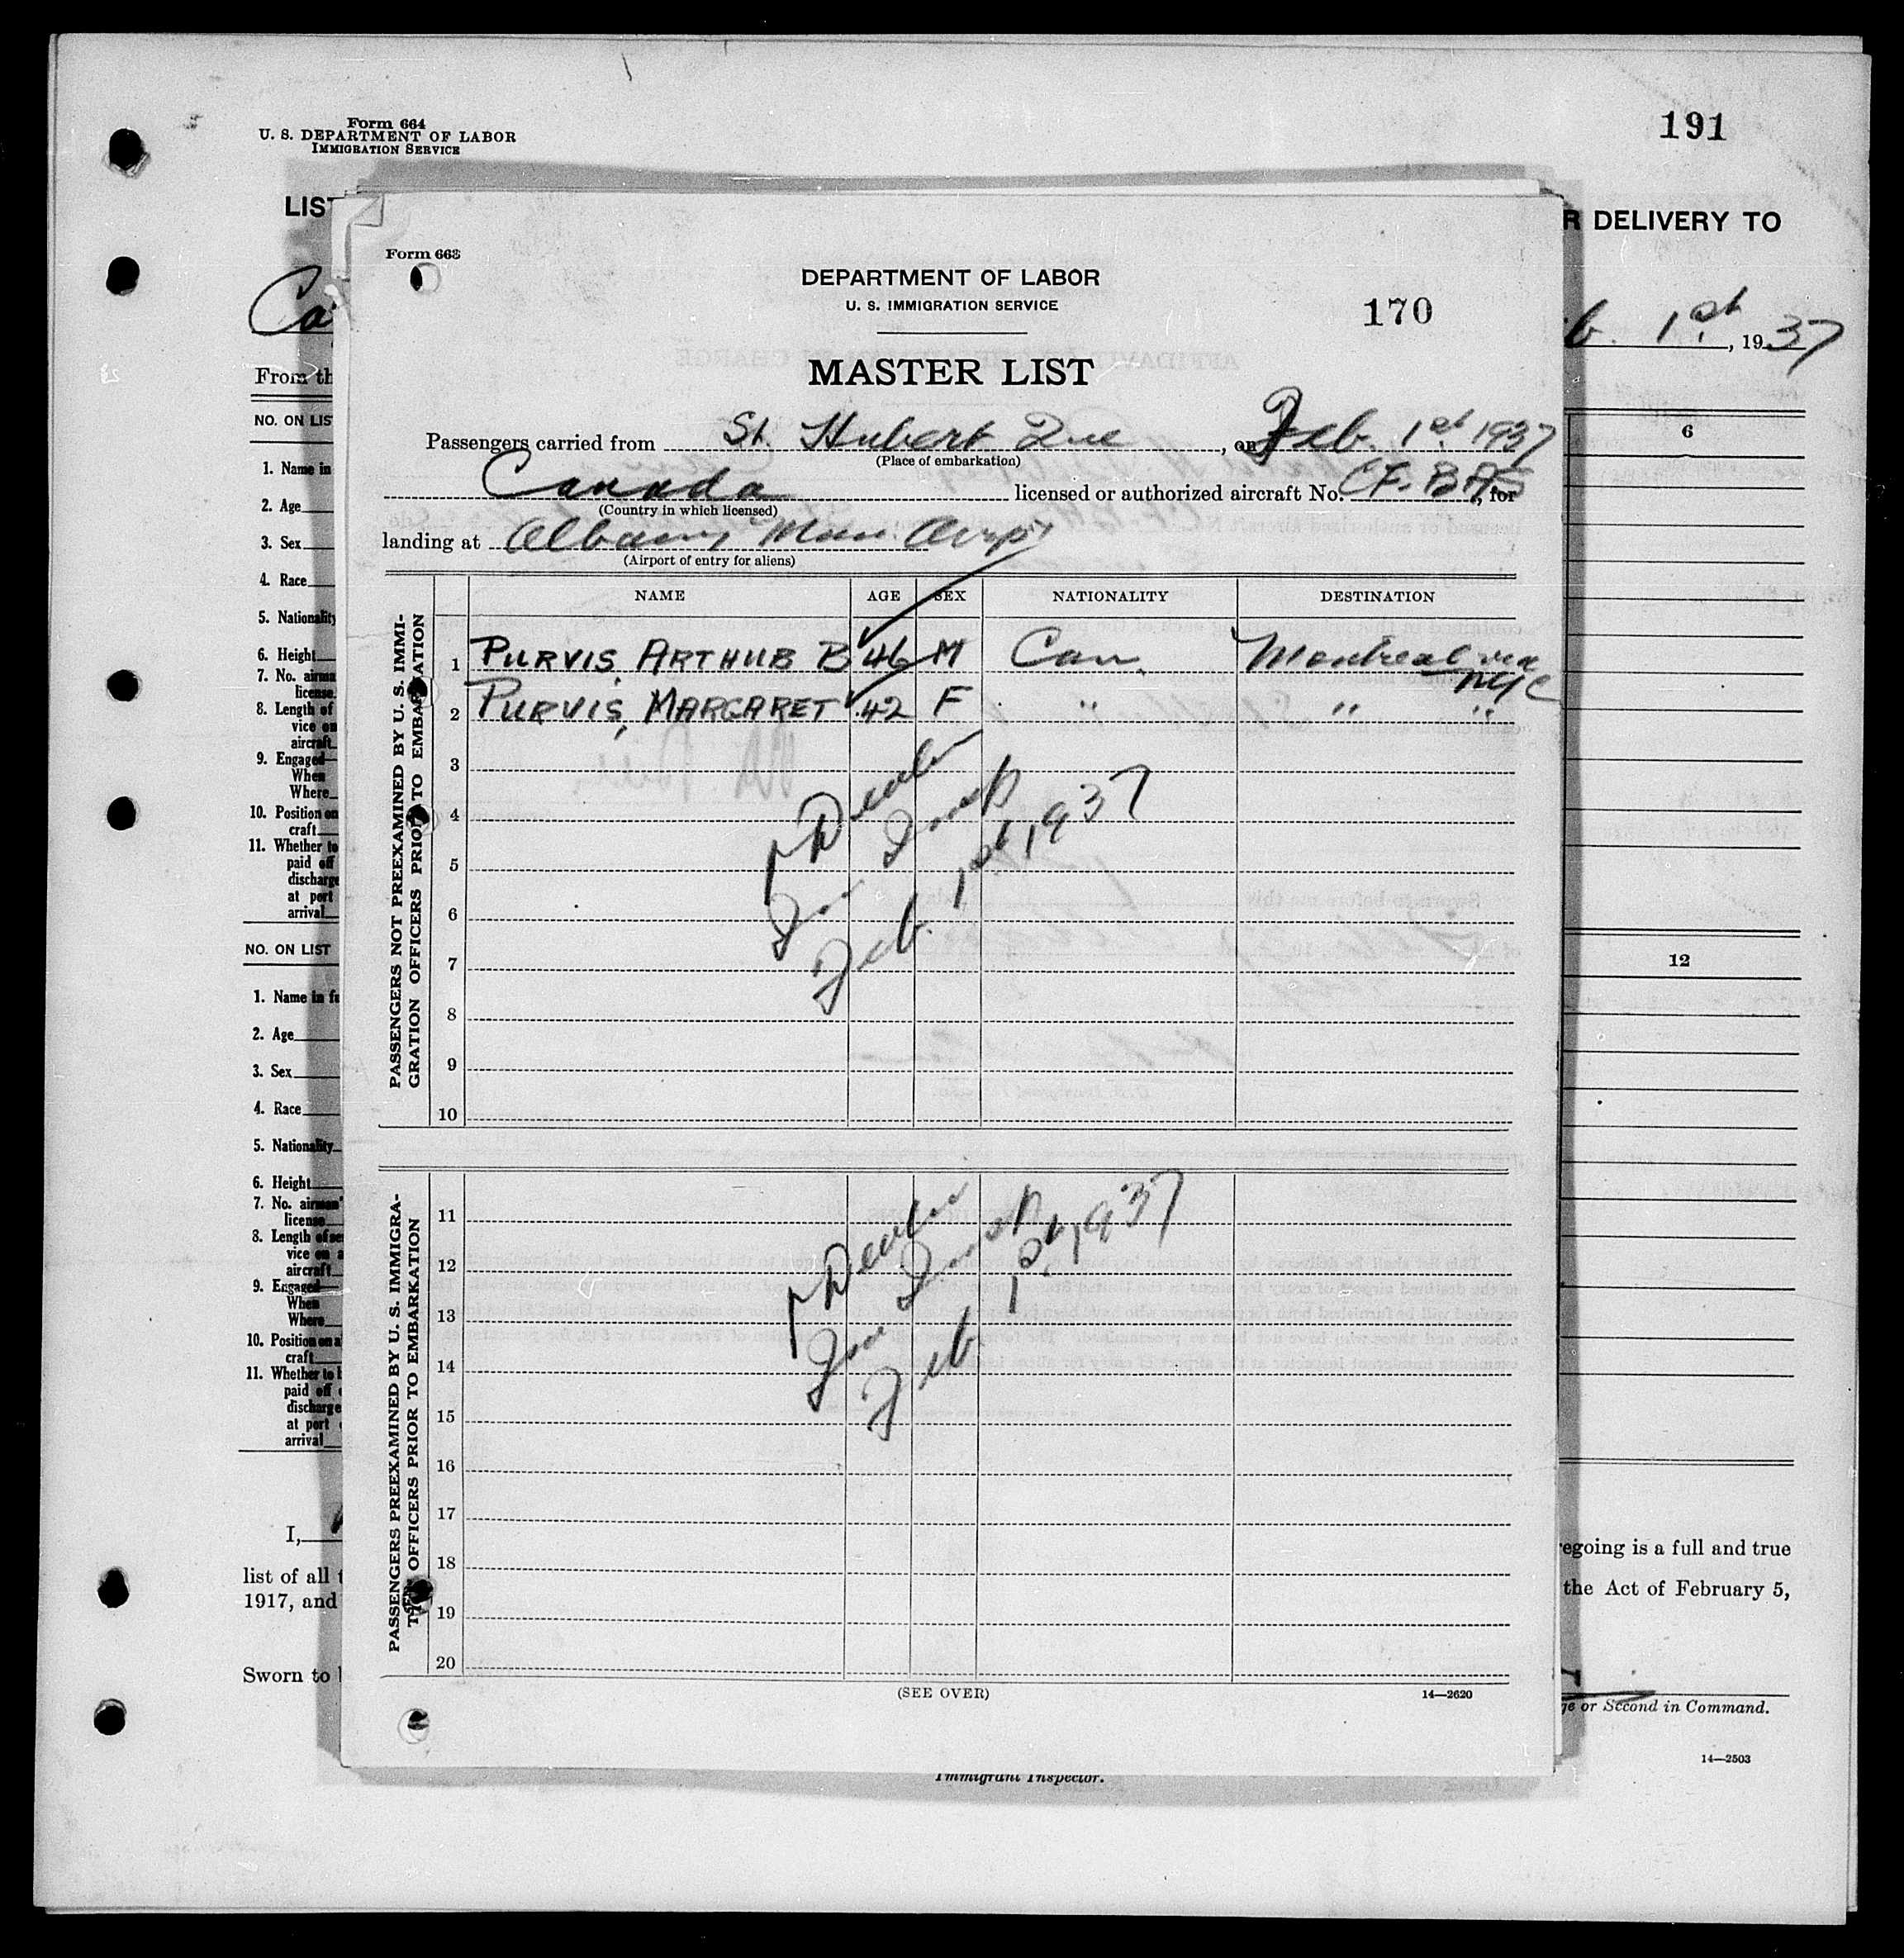 Form 664
U. S. DEPARTMENT OF LABOR
IMMIGRATION SERVICE
191
LIST
R DELIVERY TO
b. 1st, 1937
From th
Form 663
DEPARTMENT OF LABOR
U. S. IMMIGRATION SERVICE
170
MASTER LIST
Passengers carried from St. Hubert Que, on Feb. 1st 1937
(Place of embarkation)
Canada licensed or authorized aircraft No. CF. BAS, for
(Country in which licensed)
landing at Albany Mun. Airpt
(Airport of entry for aliens)
NAME AGE SEX NATIONALITY DESTINATION
PASSENGERS NOT PREEXAMINED BY U. S. IMMI-
GRATION OFFICERS PRIOR TO EMBARKATION
1 PURVIS, ARTHUR B 46 M Can. Montreal via NYC
2 PURVIS, MARGARET 42 F " " "
3
4
5
6
7
8
9
10
Feb. 1st, 1937
PASSENGERS PREEXAMINED BY U. S. IMMIGRA-
TION OFFICERS PRIOR TO EMBARKATION
11
12
13
14
15
16
17
18
19
20
Feb. 1st, 1937
(SEE OVER)
14—2620
NO. ON LIS
1. Name in
2. Age
3. Sex
4. Race
5. Nationality
6. Height
7. No. airma
license
8. Length of
vice on
aircraft
9. Engaged—
When
Where
10. Position on
craft
11. Whether to
paid off
discharge
at port
arrival
6
NO. ON LIST
1. Name in fu
2. Age
3. Sex
4. Race
5. Nationality
6. Height
7. No. airman'
license
8. Length of ser
vice on a
aircraft
9. Engaged—
When
Where
10. Position on a
craft
11. Whether to b
paid off
discharge
at port
arrival
12
I,
egoing is a full and true
list of all t
the Act of February 5,
1917, and
Sworn to b
ge or Second in Command.
14—2503
Immigrant Inspector.